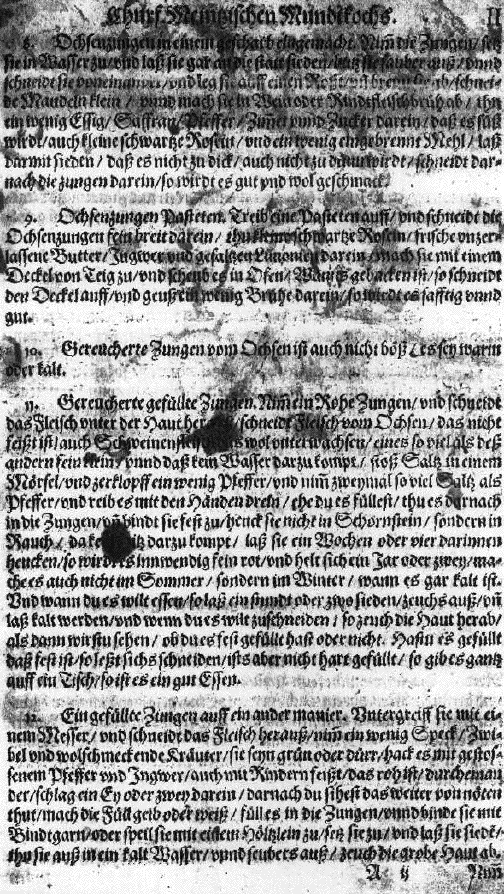 Churf. Meintzischen Mundtkochs. II
8. Ochsenzungen in einem gescharb eingemacht. Nim̃ die Zungen / setz
sie in Wasser zu / vnd laß sie gar an die statt sieden / butz sie sauber auß / vnnd
schneidt sie voneinander / vnd leg sie auff einen Roßt / vñ breun sie ab / schneid-
de Mandeln klein / vnnd mach sie in Wein oder Rindtfleischbrüh ab / thu
ein wenig Essig / Saffran / Pfeffer / Zimet vnnd Zucker darein / daß es süß
wirdt / auch kleine schwartze Rosein / vnd ein wenig eingebrennt Mehl / laß
darmit sieden / daß es nicht zu dick / auch nicht zu dünn wirdt / schneidt dar-
nach die zungen darein / so wirdt es gut vnd wol geschmack.
9. Ochsenzungen Pasteten. Treib eine Pasteten auff / vnd schneidt die
Ochsenzungen fein breit darein / thu kleine schwartze Rosein / frische vnzer-
lassene Butter / Ingwer vnd gesaltzen Limonien darein / mach sie mit einem
Deckel von Teig zu / vnd scheub es in Ofen / Wanns gebacken ist / so schneidt
den Deckel auff / vnd geuß ein wenig Brühe darein / so wirdt es safftig vnnd
gut.
10. Gereucherte Zungen vom Ochsen ist auch nicht böß / es sey warm
oder kalt.
11. Gereucherte gefüllte Zungen. Nim̃ ein Rohe Zungen / vnd schneidt
das Fleisch vnter der Haut herauß / schneidt Fleisch vom Ochsen / das nicht
feißt ist / auch Schweinenfleisch das wol vnterwachsen / eines so viel als deß
andern fein klein / vnnd daß kein Wasser darzu kompt / stoß Saltz in einem
Mörsel / vnd zerklopff ein wenig Pfeffer / vnd nim̃ zweymal so viel Saltz als
Pfeffer / vnd reib es mit den Händen drein / ehe du es füllest / thu es darnach
in die Zungen / vñ bindt sie fest zu / henck sie nicht in Schornstein / sondern in
Rauch / da kein hitz darzu kompt / laß sie ein Wochen oder vier darinnen
hencken / so wirdt es innwendig fein rot / vnd helt sich ein Jar oder zwey / ma-
che es auch nicht im Sommer / sondern im Winter / wann es gar kalt ist.
Vnd wann du es wilt essen / so laß ein stundt oder zwo sieden / zeuchs auß / vñ
laß kalt werden / vnd wenn du es wilt zuschneiden / so zeuch die Haut herab /
als dann wirstu sehen / ob du es fest gefüllt hast oder nicht. Hastu es gefüllt
daß fest ist / so leßt sichs schneiden / ists aber nicht hart gefüllt / so gib es gantz
auff ein Tisch / so ist es ein gut Essen.
12. Ein gefüllte Zungen auff ein ander manier. Vntergreiff sie mit ei-
nem Messer / vnd schneidt das Fleisch herauß / nim̃ ein wenig Speck / Zwi-
bel vnd wolschmeckende Kräuter / sie seyn grün oder dürr / hack es mit gestos-
senem Pfeffer vnd Ingwer / auch mit Rindern feißt / das roh ist / durcheinan
der / schlag ein Ey oder zwey darein / darnach du sihest das weiter von nöten
thut / mach die Füll gelb oder weiß / füll es in die Zungen / vnnd binde sie mit
Bindtgarn / oder speil sie mit einem Höltzlein zu / setz sie zu / vnd laß sie siedē /
thu sie auß in ein kalt Wasser / vnnd seubers auß / zeuch die grobe Haut ab /
A ij Nim̃